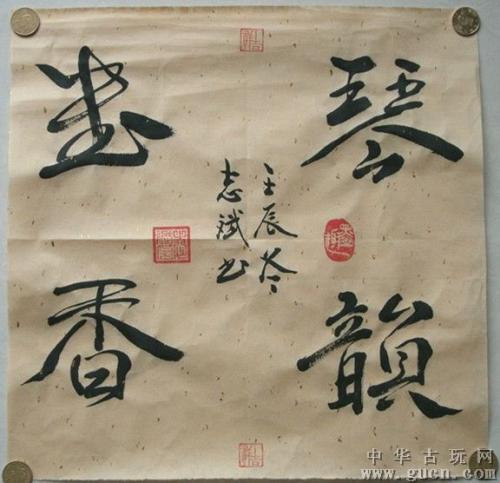 琴韻
書香
壬辰冬
志斌书
中华古玩网
www.gucn.com